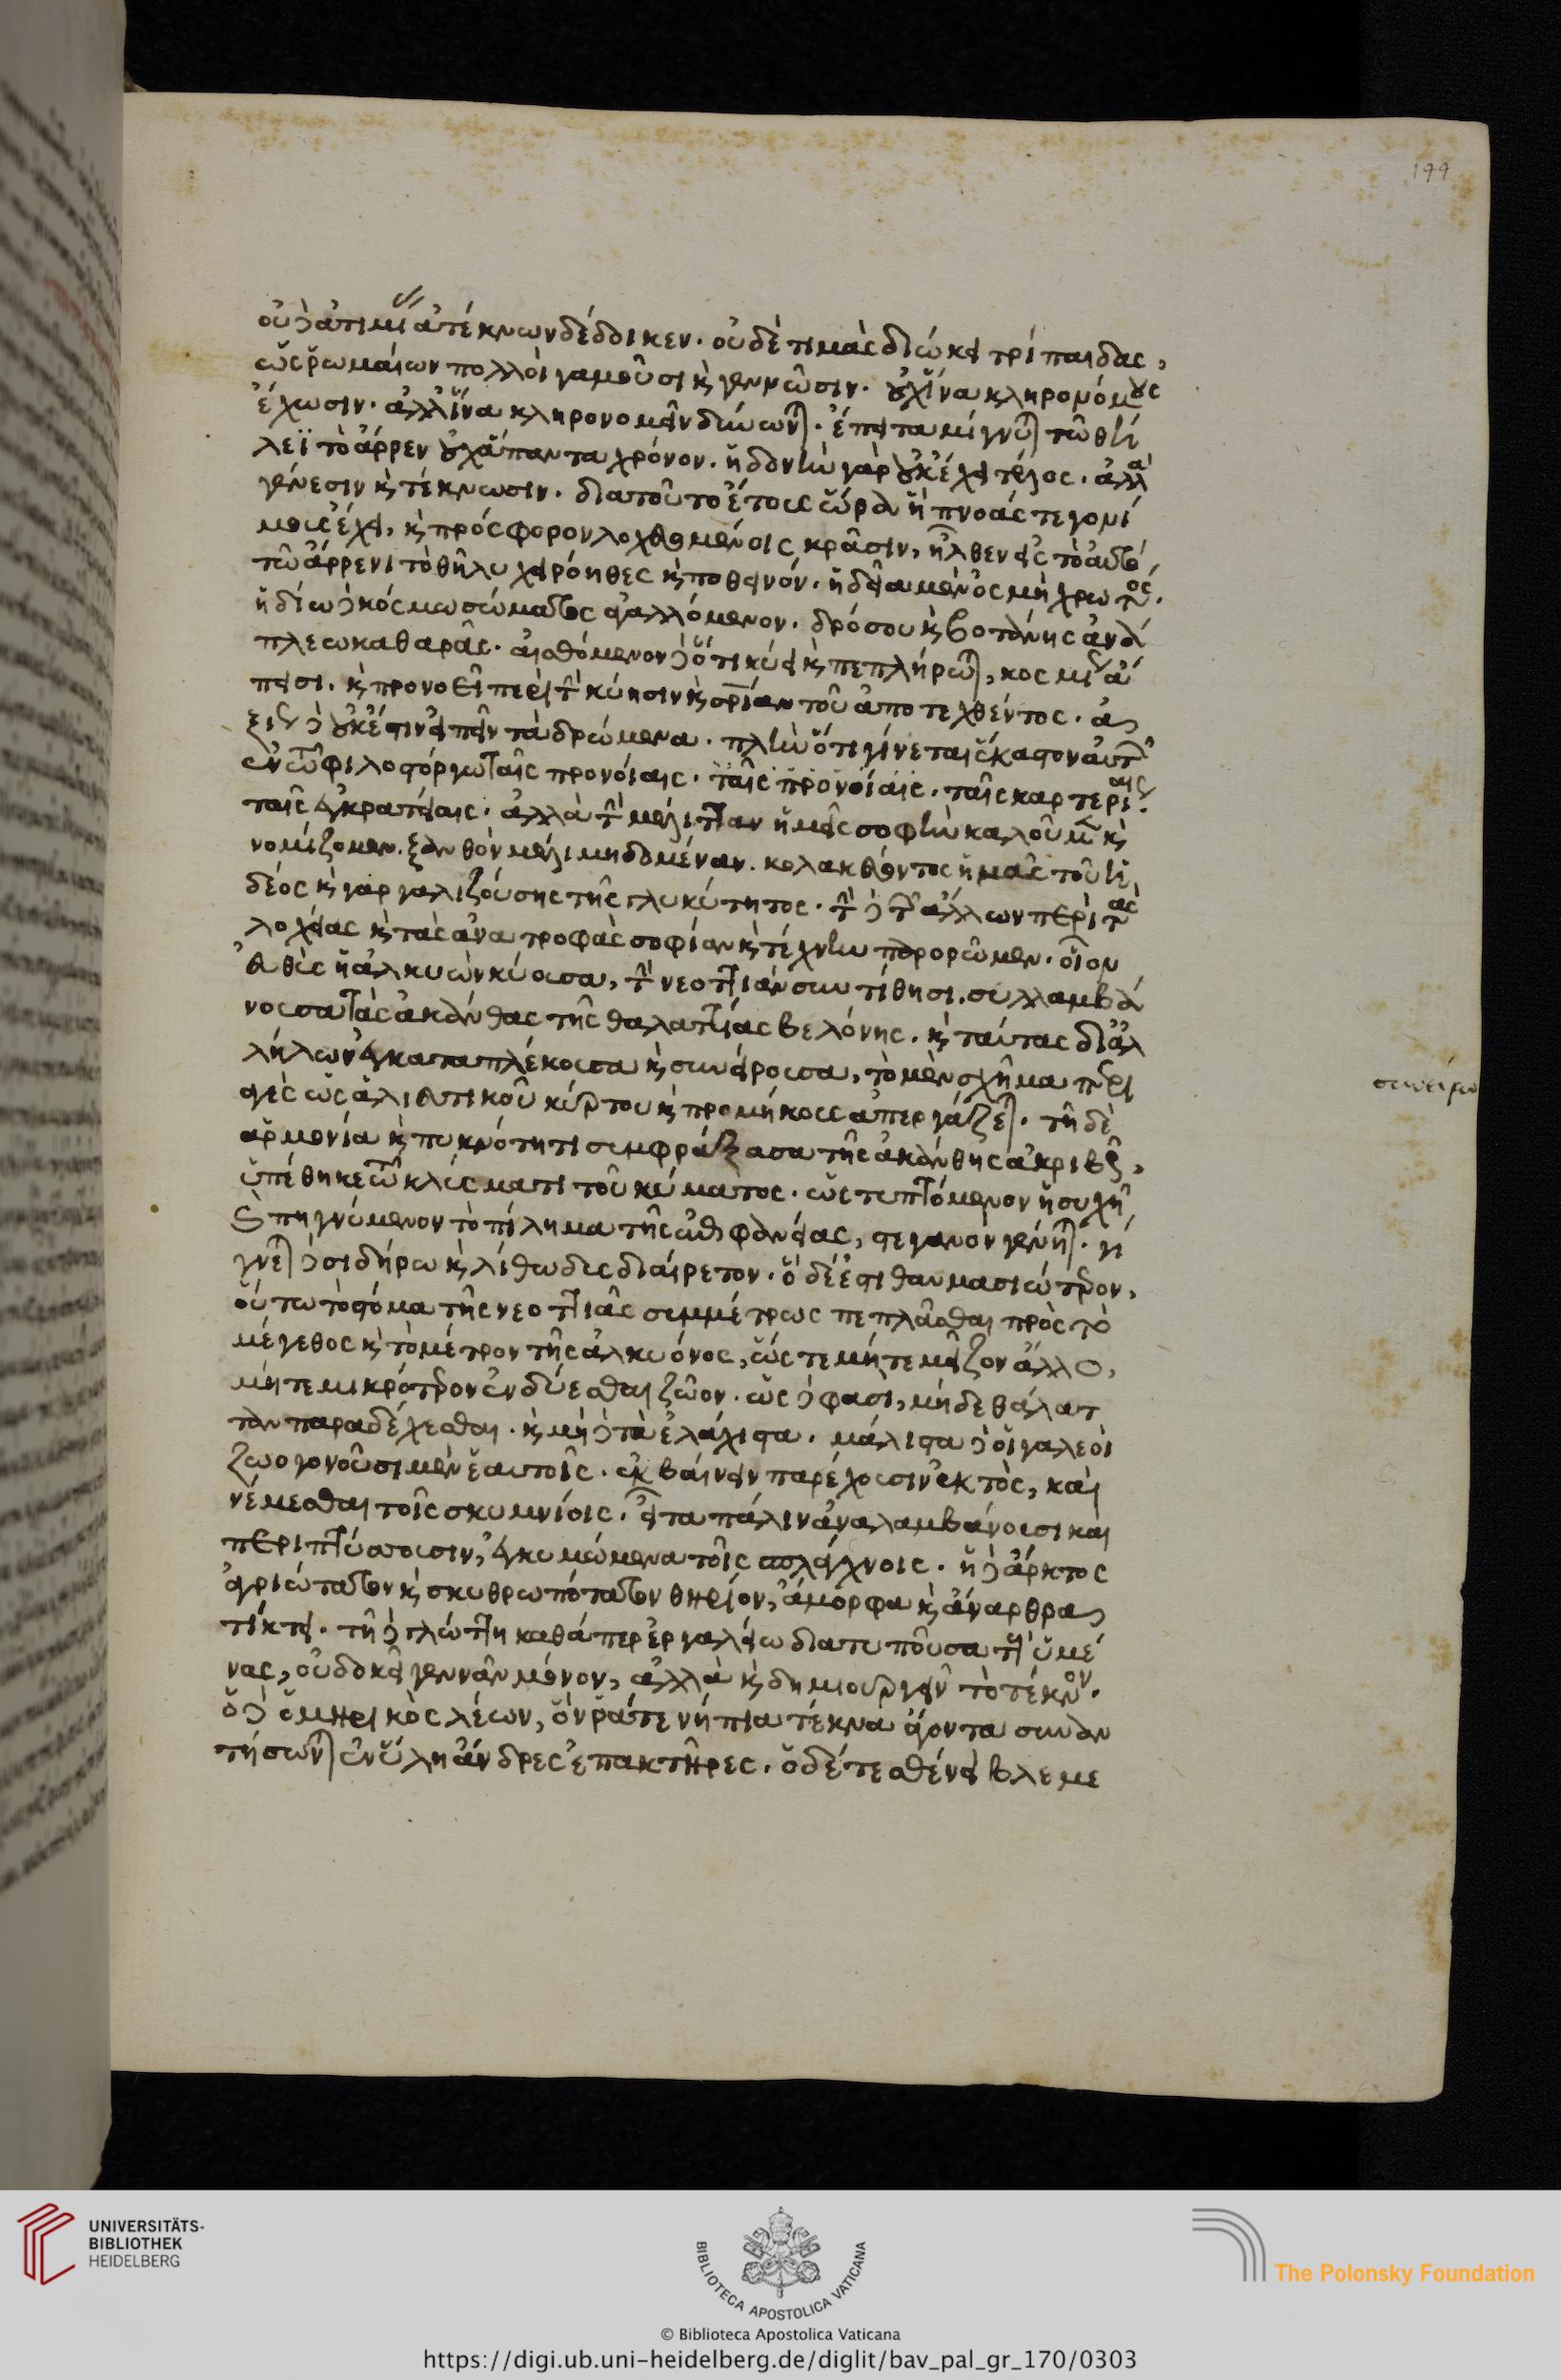 οὐδ᾽ ἀτιμίας ἀτέκνων δέδοικεν. οὐδὲ τιμὰς διώκει τρίπαιδας,
ὡς ῥωμαίων πολλοὶ γαμοῦσι κ̀ γεννῶσιν. οὐχ ἵνα κληρονόμους
ἔχωσιν. ἀλλ᾽ ἵνα κληρονομεῖν δύνωνται. ἔπειτα μίγνυται τῶ θή
λεϊ τὸ ἄρρεν οὐχ ἅπαντα χρόνον. ἡδονὴν γὰρ οὐκ ἔχει τέλος. ἀλλὰ
γένεσιν κ̀ τέκνωσιν. διατοῦτο ἔτους ὥρα ἣ πνοάς τε γονί
μους ἔχει, κ̀ πρόσφορον λοχευομένοις κρᾶσιν, ἦλθεν εἰς τὸ αὐτό,
τῶ ἄρρενι τὸ θῆλυ χειρόηθες κ̀ ποθεινόν. ἡδεία μὲν ὀσμῆ χρωτός.
ἡδίω δὲ κόσμω σώματος ἀγαλλόμενον. δρόσου κ̀ βοτάνης ἀνά
πλεω καθαρᾶς. αἰσθόμενον δὲ ὅτι κύει κ̀ πεπλήρωται, κοσμίως ἄ
πεισι. κ̀ προνοεῖ περὶ τὴν κύησιν κ̀ σρίαν τοῦ ἀποτεχθέντος. ἀ
ξίως δὲ οὐκέστιν εἰπεῖν τὰ δρώμενα. πλὴν ὅτι γίνεται ἕκαστον αὐτῶν
ἐν τῶ φιλοστόργω ταῖς προνοίαις. ταῖς προνοίαις. ταῖς καρτερίαις.
ταῖς ἐγκρατείαις. ἀλλὰ τὴν μέλιτταν ἡμεῖς σοφὴν καλοῦμεν κ̀
νομίζομεν. ξανθὸν μέλι μηδομέναν. κολακεύοντος ἡμᾶς τοῦ ἡ
δέος κ̀ γαργαλιζούσης τῆς γλυκύτητος. τὴν δὲ τῶν ἄλλων περὶ τὰς
λοχείας κ̀ τὰς ἀνατροφὰς σοφίαν κ̀ τέχνην παρορῶμεν. οἷον
εὐθὺς ἡ ἀλκυὼν κύουσα, τὴν νεοττιὰν συντίθησι. συλλαμβά
νουσα τὰς ἀκάνθας τῆς θαλαττίας βελόνης. κ̀ ταύτας δι᾽ ἀλ
λήλων ἐγκαταπλέκουσα κ̀ συνείρουσα, τὸ μὲν σχῆμα περι
φερὲς ὡς ἁλιευτικοῦ κύρτου κ̀ προμήκους ἀπεργάζεται. τῆ δὲ
ἁρμονία κ̀ πυκνότητι συμφράξασα τῆς ἀκάνθης ἀκριβῶς,
ὑπέθηκε τῶ κλύσματι τοῦ κύματος. ὡς τυπτόμενον ἡσυχῆ
κ̀ πηγνύμενον τὸ πίλημα τῆς ἐπιφανείας, στεγανὸν γένηται. γί
γνεται δὲ σιδήρω κ̀ λίθω δυσδιαίρετον. ὃ δέ ἐστι θαυμασιώτερον,
οὕτω τὸ στόμα τῆς νεοττιᾶς συμμέτρως πεπλᾶσθαι πρὸς τὸ
μέγεθος κ̀ τὸ μέτρον τῆς ἀλκυόνος, ὥς τε μήτε μεῖζον ἄλλο,
μήτε μικρότερον ἐνδύεσθαι ζῶον. ὡς δὲ φασι, μηδὲ θάλατ
ταν παραδέχεσθαι. κ̀ μὴ δὲ τὰ ἐλάχιστα. μάλιστα δὲ οἱ γαλεοὶ
ζωογονοῦσι μὲν ἑαυτοῖς. ἐκβαίνειν παρέχουσιν ἐκτὸς, καὶ
νέμεσθαι τοῖς σκυμνίοις. εἶτα πάλιν ἀναλαμβάνουσι καὶ
περιπτύσσουσιν, ἐγκυμώμενα τοῖς σπλάγχνοις. ἡ δὲ ἄρκτος
ἀγριώτατον κ̀ σκυθρωπότατον θηρίον, ἄμορφα κ̀ ἄναρθρα
τίκτει. τῆ δὲ γλώττη καθάπερ ἐργαλείω διατυποῦσα τοὺς ὑμέ
νας, οὐ δοκεῖ γεννᾶν μόνον, ἀλλὰ κ̀ δημιουργεῖν τὸ τέκνον.
ὁ δὲ ὁμηρικὸς λέων, ὅν ῥά τε νήπια τέκνα ἄγοντα συναν
τήσωνται ἐν ὕλη ἄνδρες ἐπακτῆρες. ὁ δέ τε σθένει βλεμε
συνείρω
199
UNIVERSITÄTS-
BIBLIOTHEK
HEIDELBERG
BIBLIOTECA APOSTOLICA VATICANA
The Polonsky Foundation
© Biblioteca Apostolica Vaticana
https://digi.ub.uni-heidelberg.de/diglit/bav_pal_gr_170/0303